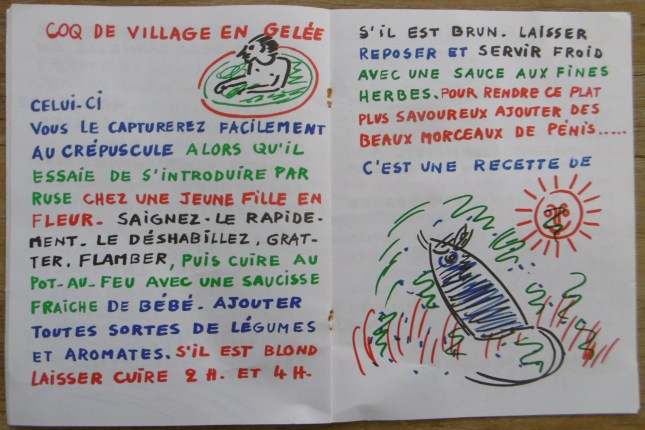 COQ DE VILLAGE EN GELÉE
CELUI-CI
VOUS LE CAPTUREREZ FACILEMENT
AU CRÉPUSCULE ALORS QU'IL
ESSAIE DE S'INTRODUIRE PAR
RUSE CHEZ UNE JEUNE FILLE EN
FLEUR. SAIGNEZ-LE RAPIDE-
MENT. LE DÉSHABILLEZ, GRAT-
TER. FLAMBER, PUIS CUIRE AU
POT-AU-FEU AVEC UNE SAUCISSE
FRAÎCHE DE BÉBÉ. AJOUTER
TOUTES SORTES DE LÉGUMES
ET AROMATES. S'IL EST BLOND
LAISSER CUIRE 2 H. ET 4 H.
S'IL EST BRUN. LAISSER
REPOSER ET SERVIR FROID
AVEC UNE SAUCE AUX FINES
HERBES. POUR RENDRE CE PLAT
PLUS SAVOUREUX AJOUTER DES
BEAUX MORCEAUX DE PÉNIS.....
C'EST UNE RECETTE DE